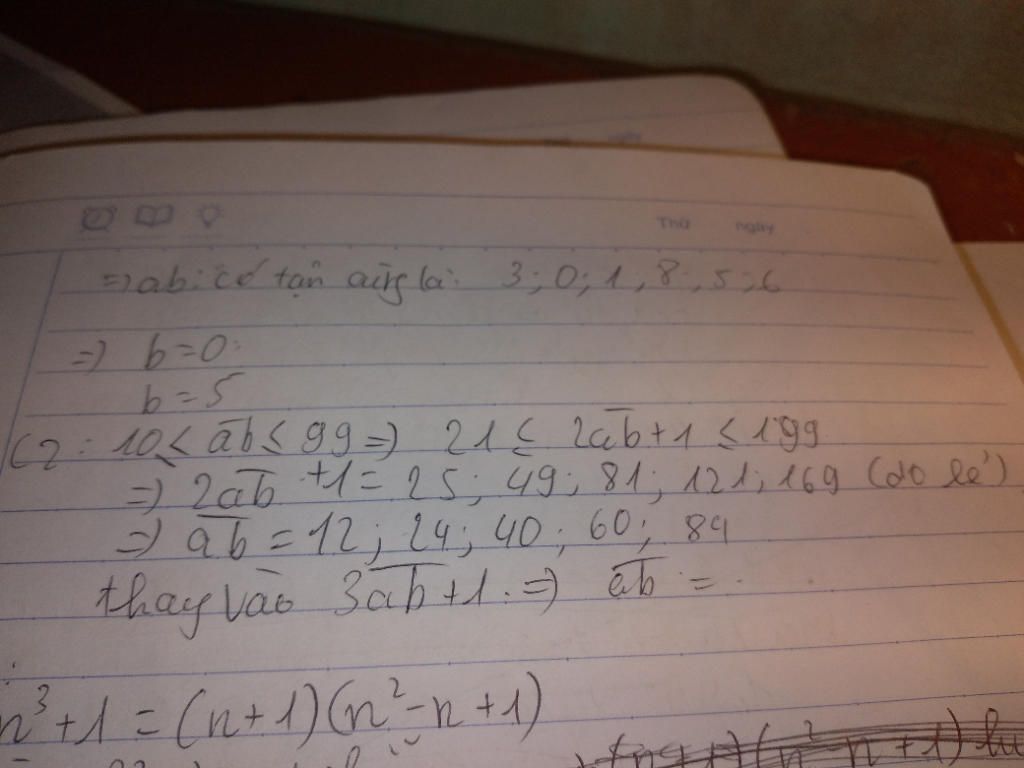 Thứ ngày
=> ab: có tận cùng là: 3; 0; 1, 8; 5; 6
=> b=0
b=5
C2: 10 ≤ ab̅ ≤ 99 => 21 ≤ 2ab̅+1 ≤ 199
=> 2ab̅ +1 = 25; 49; 81; 121; 169 (do lẻ)
=> ab̅ = 12; 24; 40; 60; 84
thay vào 3ab̅+1. => ab̅ = .
n³+1 = (n+1)(n²-n+1)
(n+1)(n²-n+1)